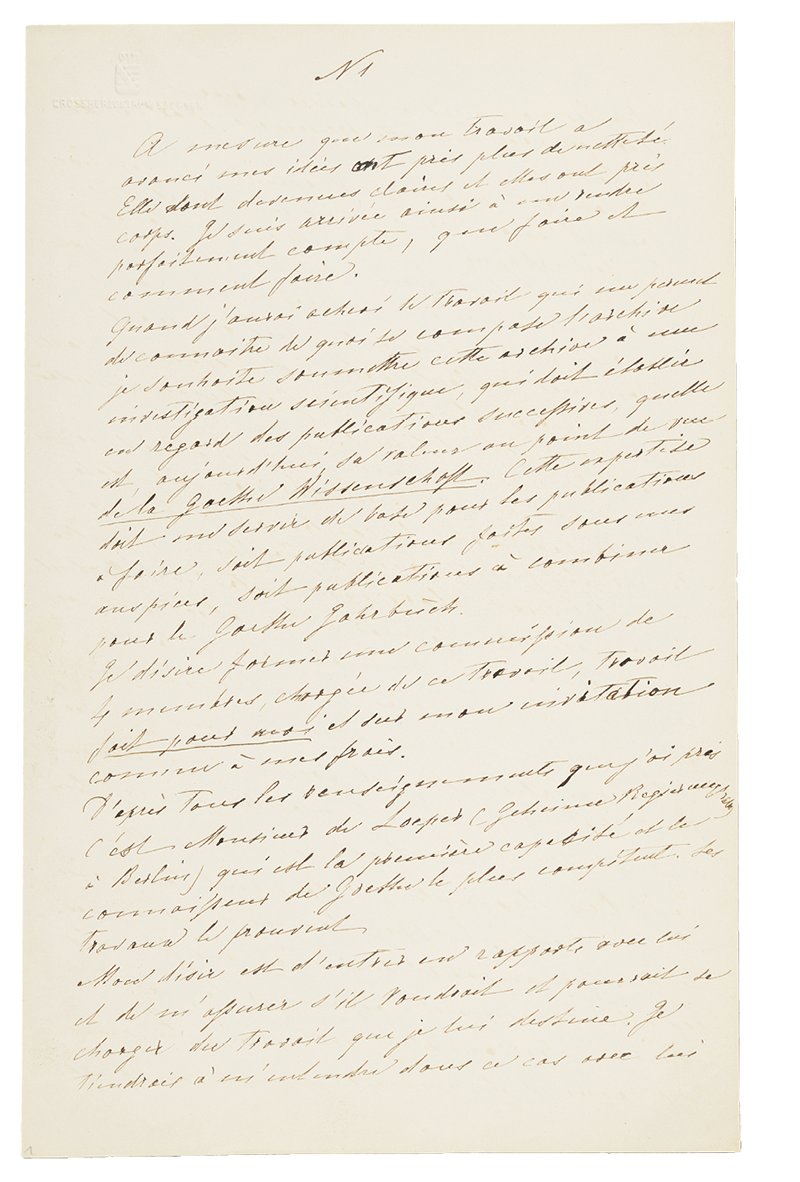 N 1
A mesure que mon travail a
avancé mes idées ont près plus de netteté.
Elle sont devenues claires et elles ont près
corps. Je suis arrivée ainsi à me rendre
parfaitement compte, que faire et
comment faire.
Quand j'aurai achevé le travail qui me permet
de connaitre de quoi se compose l'archive
je souhaite soumettre cette archive à une
investigation scientifique, qui doit établir
en regard des publications successives, quelle
est aujourd'hui sa valeur au point de vue
de la Goethe Wissenschaft. Cette expertise
doit me servir de base pour les publications
à faire, soit publications faites sous mes
auspices, soit publications à combiner
pour le Goethe Jahrbuch.
Je désire former une commission de
4 membres, chargée de ce travail, travail
fait pour moi et sur mon invitation
comme à mes frais.
D'après tous les renseignements que j'ai pris
c'est Monsieur de Loeper (Geheimer Regierungsrath
à Berlin) qui est la première capacité et le
connaisseur de Goethe le plus compétent. Ses
travaux le prouvent
Mon désir est d'entrer en rapports avec lui
et de m'assurer s'il voudrait et pourrait se
charger du travail que je lui destine. Je
tiendrais à m'entendre dans ce cas avec lui
1